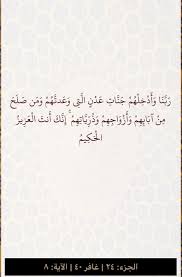 رَبَّنَا وَأَدْخِلْهُمْ جَنَّاتِ عَدْنٍ الَّتِي وَعَدتَّهُمْ وَمَن صَلَحَ
مِنْ آبَائِهِمْ وَأَزْوَاجِهِمْ وَذُرِّيَّاتِهِمْ ۚ إِنَّكَ أَنتَ الْعَزِيزُ
الْحَكِيمُ
الجزء: ٢٤ | غافر ٤٠ | الآية: ٨